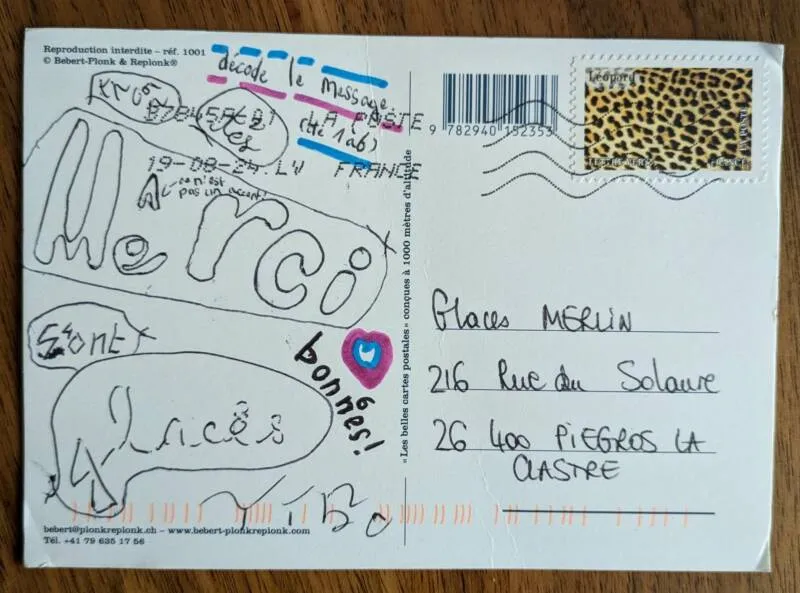 Reproduction interdite – réf. 1001
© Bebert-Plonk & Replonk®
décode le message
LA POSTE
19-08-24 LV FRANCE
ce n'est
pas un accent!
Merci
bonnes!
TiBo
bebert@plonkreplonk.ch – www.bebert-plonkreplonk.com
Tél. +41 79 635 17 56
«Les belles cartes postales» conçues à 1000 mètres d'altitude
9 782940 152353
Léopard
LA POSTE
LETTRE VERTE
FRANCE
Glaces MERLIN
216 Rue du Solaure
26 400 PIEGROS LA
CLASTRE